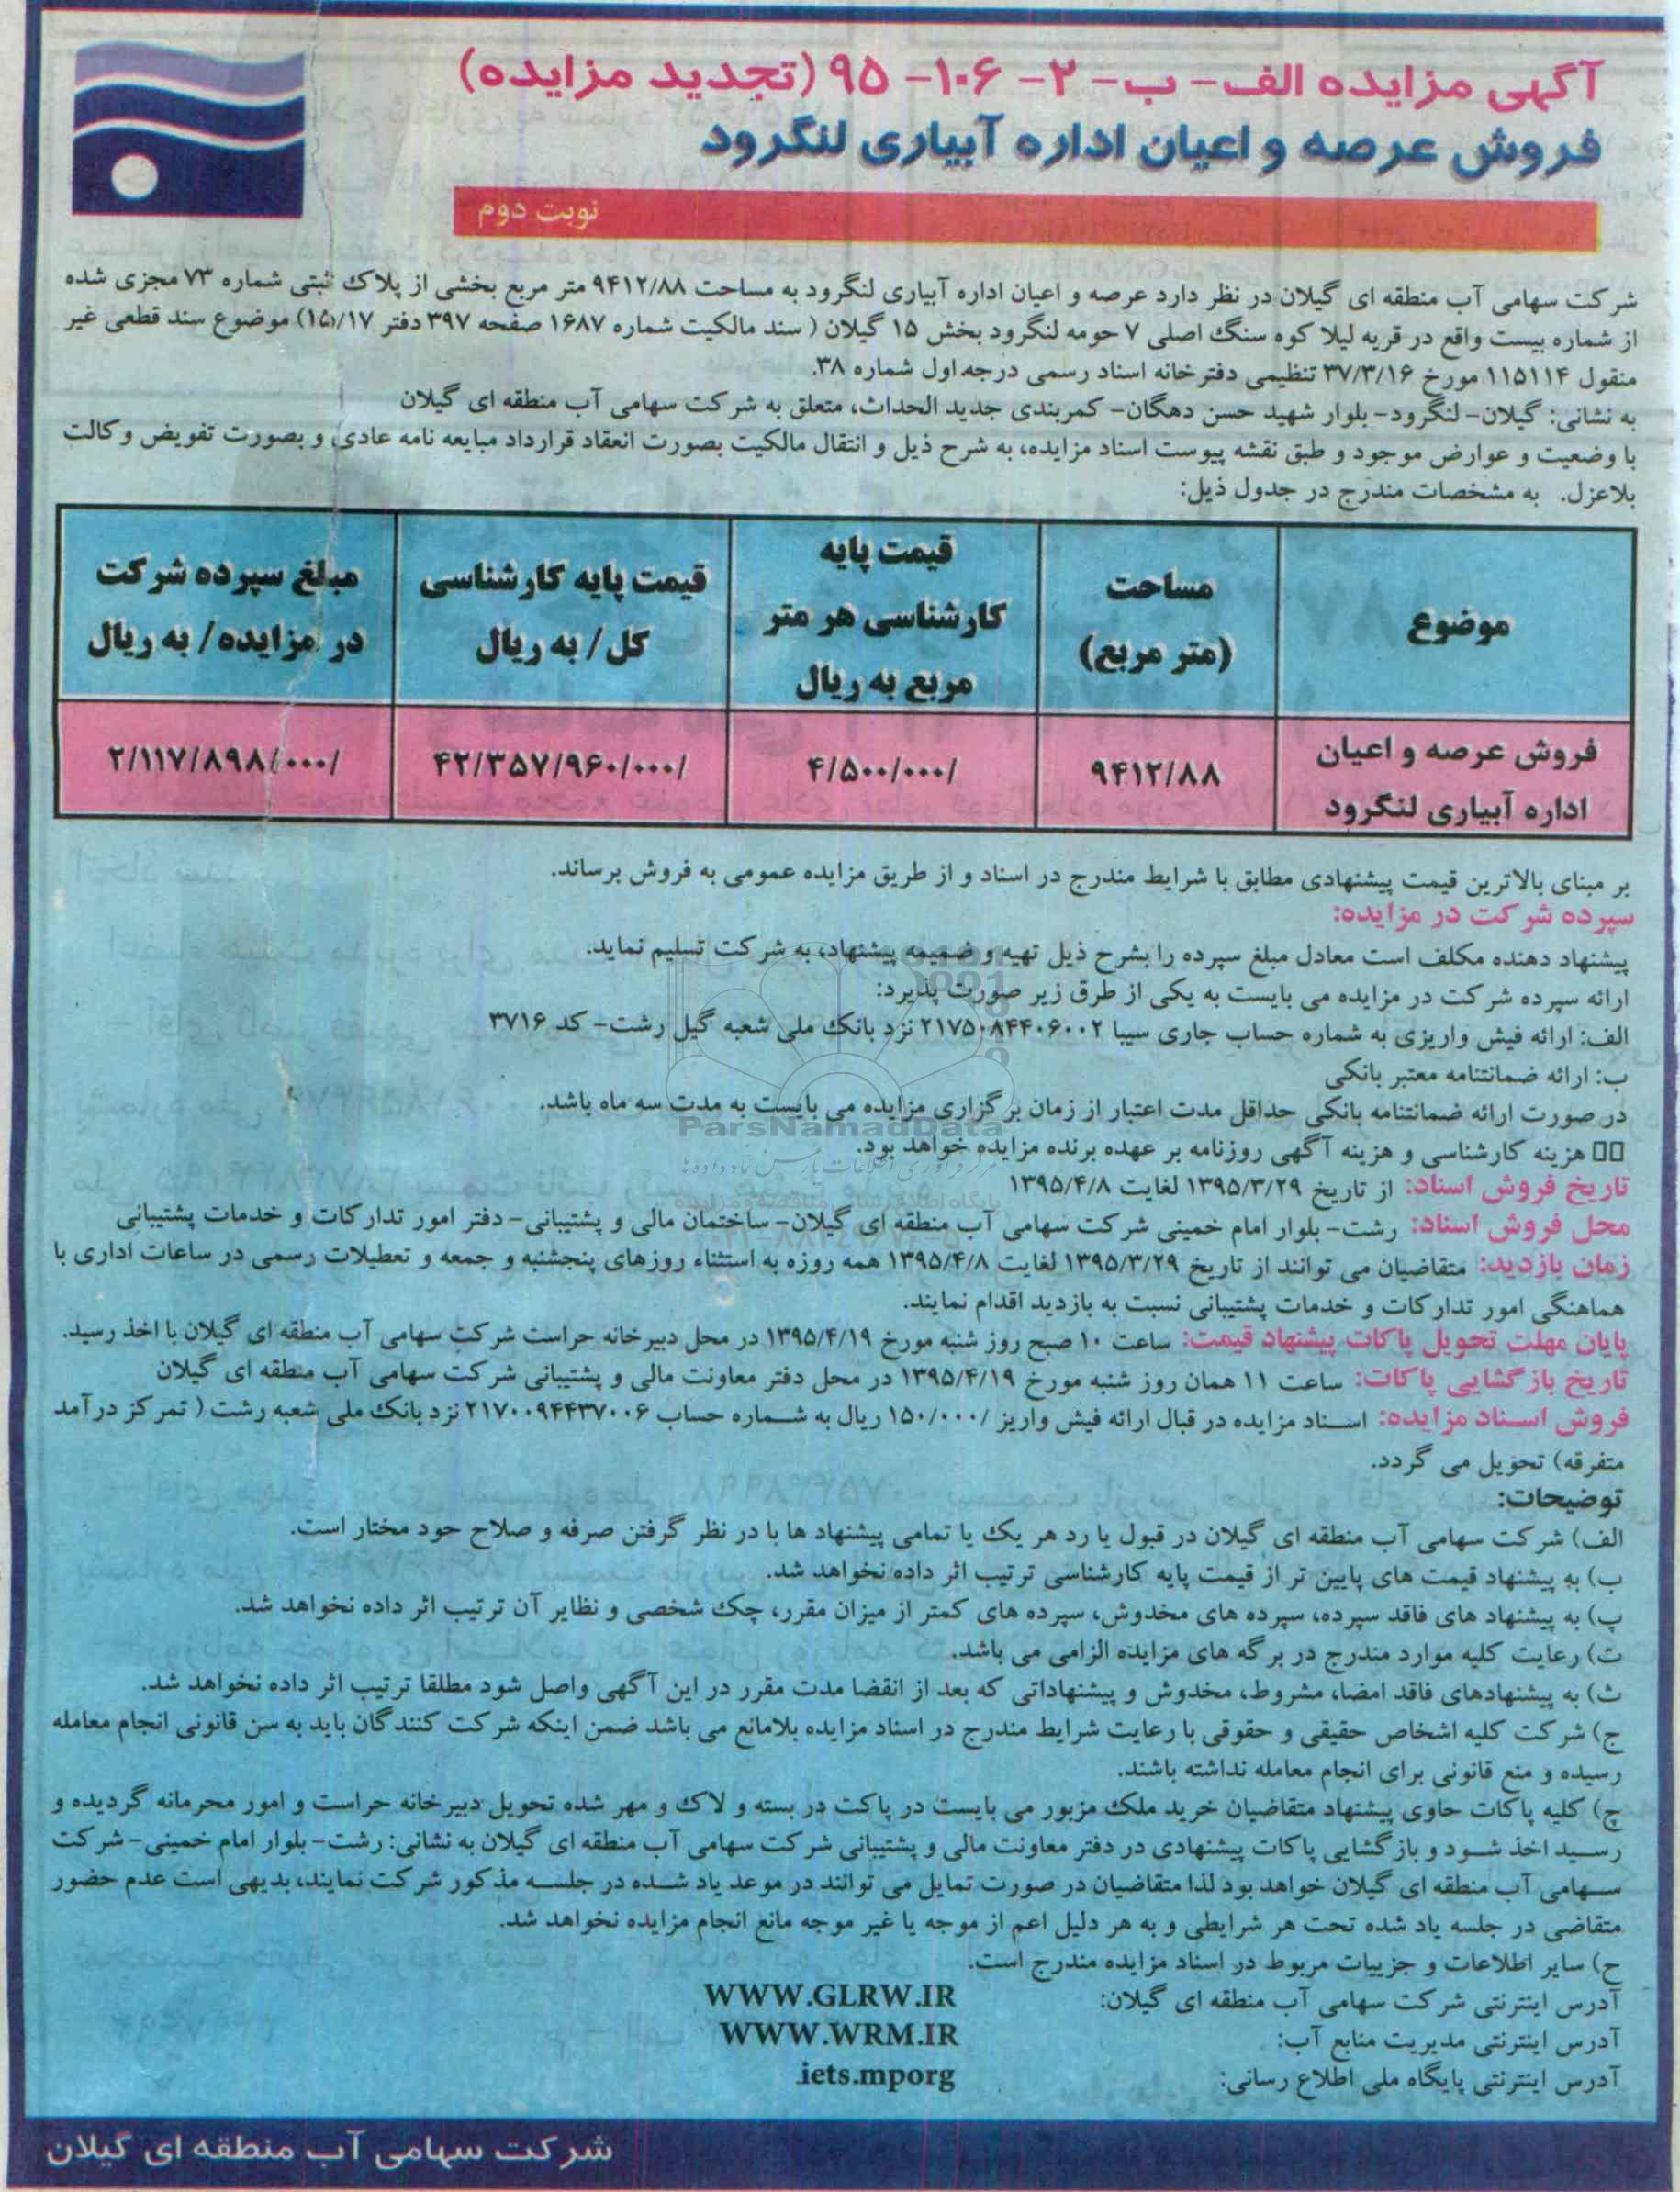 آگهی مزایده الف- ب- ۲- ۱۰۶- ۹۵ (تجدید مزایده)
فروش عرصه و اعیان اداره آبیاری لنگرود
نوبت دوم
شرکت سهامی آب منطقه ای گیلان در نظر دارد عرصه و اعیان اداره آبیاری لنگرود به مساحت ۹۴۱۲/۸۸ متر مربع بخشی از پلاک ثبتی شماره ۷۳ مجزی شده
از شماره بیست واقع در قریه لیلا کوه سنگ اصلی ۷ حومه لنگرود بخش ۱۵ گیلان ( سند مالکیت شماره ۱۶۸۷ صفحه ۳۹۷ دفتر ۱۵/۱۷) موضوع سند قطعی غیر
منقول ۱۱۵۱۱۴ مورخ ۳۷/۳/۱۶ تنظیمی دفترخانه اسناد رسمی درجه اول شماره ۳۸.
به نشانی: گیلان- لنگرود- بلوار شهید حسن دهگان- کمربندی جدید الحداث، متعلق به شرکت سهامی آب منطقه ای گیلان
با وضعیت و عوارض موجود و طبق نقشه پیوست اسناد مزایده، به شرح ذیل و انتقال مالکیت بصورت انعقاد قرارداد مبایعه نامه عادی و بصورت تفویض وکالت
بلاعزل. به مشخصات مندرج در جدول ذیل:
موضوع
مساحت
(متر مربع)
قیمت پایه
کارشناسی هر متر
مربع به ریال
قیمت پایه کارشناسی
کل / به ریال
مبلغ سپرده شرکت
در مزایده/ به ریال
فروش عرصه و اعیان
اداره آبیاری لنگرود
۹۴۱۲/۸۸
۴/۵۰۰/۰۰۰/
۴۲/۳۵۷/۹۶۰/۰۰۰/
۲/۱۱۷/۸۹۸/۰۰۰/
بر مبنای بالاترین قیمت پیشنهادی مطابق با شرایط مندرج در اسناد و از طریق مزایده عمومی به فروش برساند.
سپرده شرکت در مزایده:
پیشنهاد دهنده مکلف است معادل مبلغ سپرده را بشرح ذیل تهیه و ضمیمه پیشنهاد، به شرکت تسلیم نماید.
ارائه سپرده شرکت در مزایده می بایست به یکی از طرق زیر صورت پذیرد:
الف: ارائه فیش واریزی به شماره حساب جاری سیبا ۲۱۷۵۰۸۴۴۰۶۰۰۲ نزد بانک ملی شعبه گیل رشت- کد ۳۷۱۶
ب: ارائه ضمانتنامه معتبر بانکی
در صورت ارائه ضمانتنامه بانکی حداقل مدت اعتبار از زمان برگزاری مزایده می بایست به مدت سه ماه باشد.
ParsNamadData
هزینه کارشناسی و هزینه آگهی روزنامه بر عهده برنده مزایده خواهد بود.
تاریخ فروش اسناد: از تاریخ ۱۳۹۵/۳/۲۹ لغایت ۱۳۹۵/۴/۸
محل فروش اسناد: رشت- بلوار امام خمینی شرکت سهامی آب منطقه ای گیلان- ساختمان مالی و پشتیبانی- دفتر امور تدارکات و خدمات پشتیبانی
زمان بازدید: متقاضیان می توانند از تاریخ ۱۳۹۵/۳/۲۹ لغایت ۱۳۹۵/۴/۸ همه روزه به استثناء روزهای پنجشنبه و جمعه و تعطیلات رسمی در ساعات اداری با
هماهنگی امور تدارکات و خدمات پشتیبانی نسبت به بازدید اقدام نمایند.
پایان مهلت تحویل پاکات پیشنهاد قیمت: ساعت ۱۰ صبح روز شنبه مورخ ۱۳۹۵/۴/۱۹ در محل دبیرخانه حراست شرکت سهامی آب منطقه ای گیلان با اخذ رسید.
تاریخ بازگشایی پاکات: ساعت ۱۱ همان روز شنبه مورخ ۱۳۹۵/۴/۱۹ در محل دفتر معاونت مالی و پشتیبانی شرکت سهامی آب منطقه ای گیلان
فروش اسناد مزایده: اسناد مزایده در قبال ارائه فیش واریز /۱۵۰/۰۰۰ ریال به شماره حساب ۲۱۷۰۰۹۴۴۳۷۰۰۶ نزد بانک ملی شعبه رشت ( تمرکز درآمد
متفرقه) تحویل می گردد.
توضیحات:
الف) شرکت سهامی آب منطقه ای گیلان در قبول یا رد هر یک یا تمامی پیشنهاد ها با در نظر گرفتن صرفه و صلاح خود مختار است.
ب) به پیشنهاد قیمت های پایین تر از قیمت پایه کارشناسی ترتیب اثر داده نخواهد شد.
پ) به پیشنهاد های فاقد سپرده، سپرده های مخدوش، سپرده های کمتر از میزان مقرر، چک شخصی و نظایر آن ترتیب اثر داده نخواهد شد.
ت) رعایت کلیه موارد مندرج در برگه های مزایده الزامی می باشد.
ث) به پیشنهادهای فاقد امضا، مشروط، مخدوش و پیشنهاداتی که بعد از انقضا مدت مقرر در این آگهی واصل شود مطلقا ترتیب اثر داده نخواهد شد.
ج) شرکت کلیه اشخاص حقیقی و حقوقی با رعایت شرایط مندرج در اسناد مزایده بلامانع می باشد ضمن اینکه شرکت کنندگان باید به سن قانونی انجام معامله
رسیده و منع قانونی برای انجام معامله نداشته باشند.
چ) کلیه پاکات حاوی پیشنهاد متقاضیان خرید ملک مزبور می بایست در پاکت در بسته و لاک و مهر شده تحویل دبیرخانه حراست و امور محرمانه گردیده و
رسید اخذ شود و بازگشایی پاکات پیشنهادی در دفتر معاونت مالی و پشتیبانی شرکت سهامی آب منطقه ای گیلان به نشانی: رشت- بلوار امام خمینی- شرکت
سهامی آب منطقه ای گیلان خواهد بود لذا متقاضیان در صورت تمایل می توانند در موعد یاد شده در جلسه مذکور شرکت نمایند، بدیهی است عدم حضور
متقاضی در جلسه یاد شده تحت هر شرایطی و به هر دلیل اعم از موجه یا غیر موجه مانع انجام مزایده نخواهد شد.
ح) سایر اطلاعات و جزییات مربوط در اسناد مزایده مندرج است.
آدرس اینترنتی شرکت سهامی آب منطقه ای گیلان: WWW.GLRW.IR
آدرس اینترنتی مدیریت منابع آب: WWW.WRM.IR
آدرس اینترنتی پایگاه ملی اطلاع رسانی: iets.mporg
شرکت سهامی آب منطقه ای گیلان